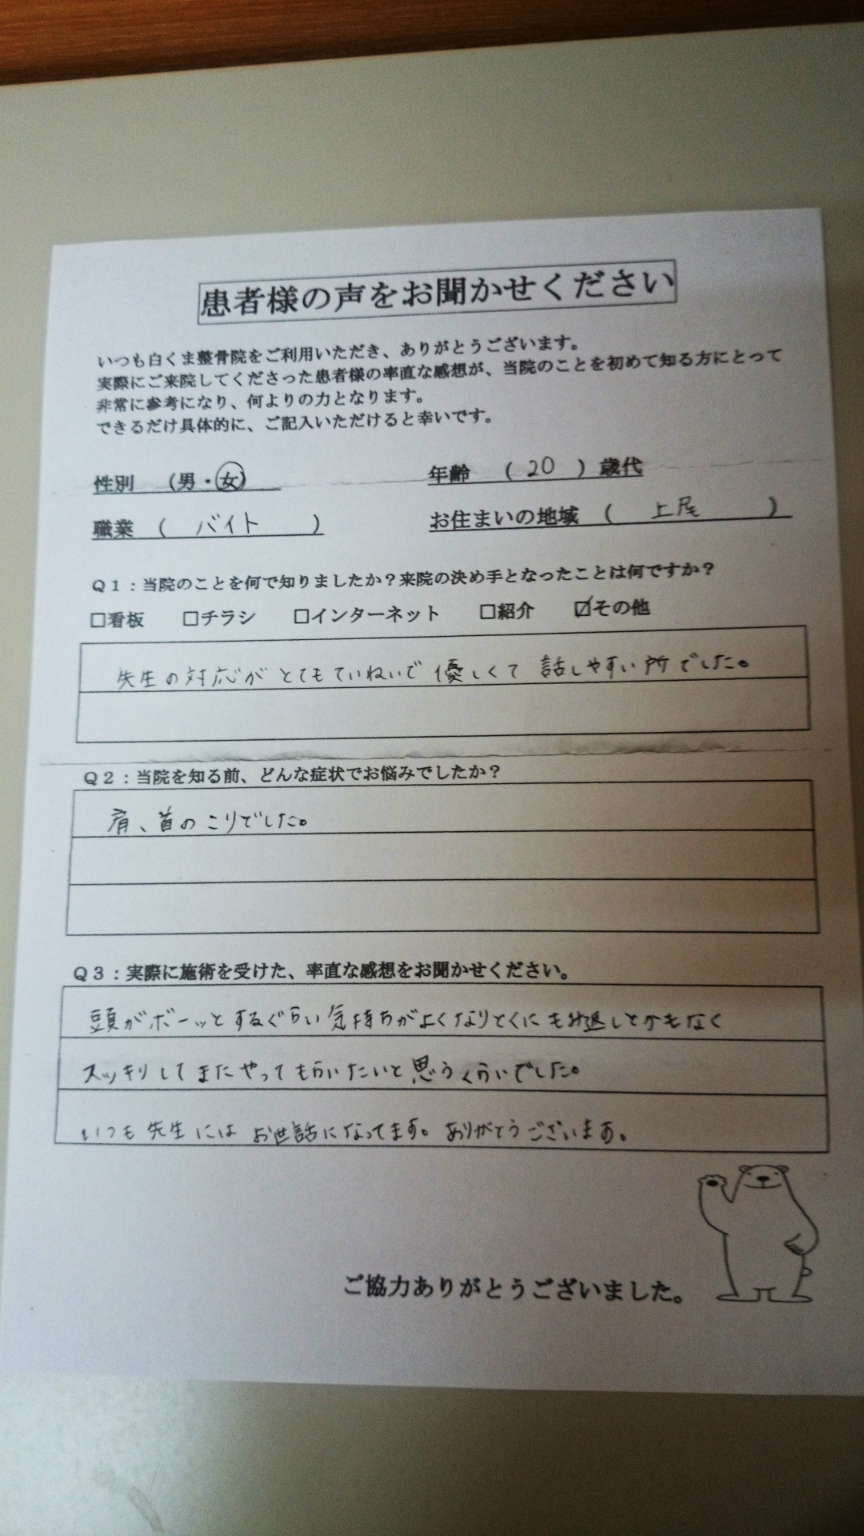 患者様の声をお聞かせください
いつも白くま整骨院をご利用いただき、ありがとうございます。
実際にご来院してくださった患者様の率直な感想が、当院のことを初めて知る方にとって
非常に参考になり、何よりの力となります。
できるだけ具体的に、ご記入いただけると幸いです。
性別 (男・女) 年齢 ( 20 ) 歳代
職業 ( バイト ) お住まいの地域 ( 上尾 )
Q1:当院のことを何で知りましたか?来院の決め手となったことは何ですか?
□看板 □チラシ □インターネット □紹介 ☑その他
先生の対応がとてもていねいで優しくて話しやすい所でした。
Q2:当院を知る前、どんな症状でお悩みでしたか?
肩、首のこりでした。
Q3:実際に施術を受けた、率直な感想をお聞かせください。
頭がボーッとするぐらい気持ちがよくなりとくにもみ返しとかもなく
スッキリしてまたやってもらいたいと思うくらいでした。
いつも先生にはお世話になってます。ありがとうございます。
ご協力ありがとうございました。